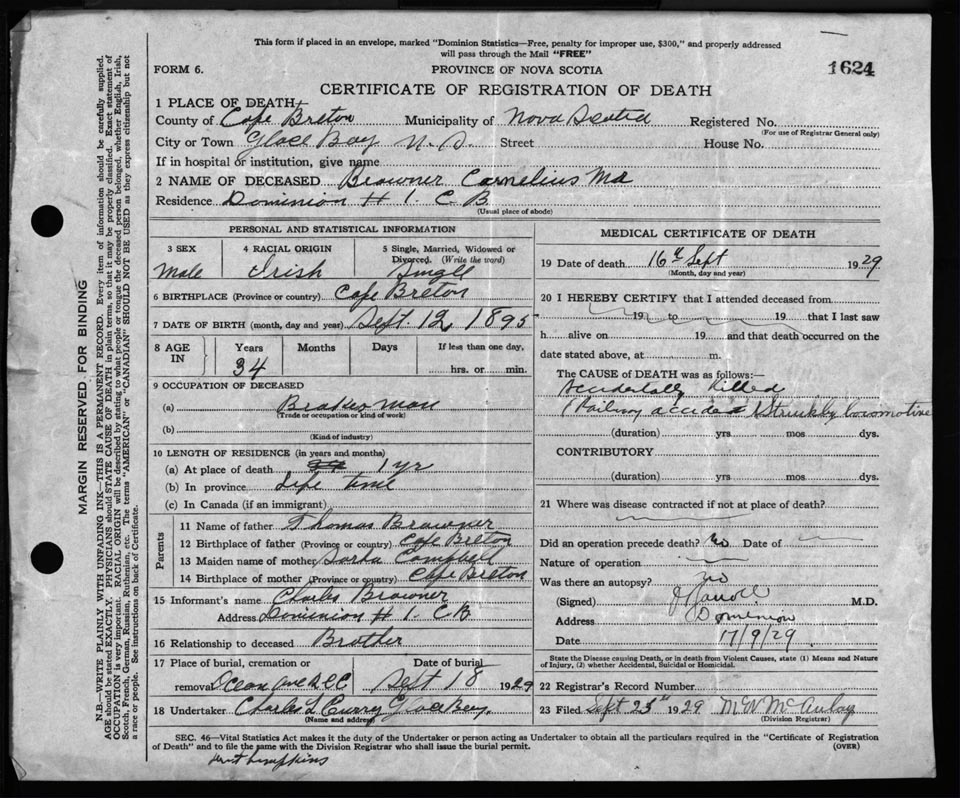 This form if placed in an envelope, marked "Dominion Statistics—Free, penalty for improper use, $300," and properly addressed
will pass through the Mail "FREE"
FORM 6. PROVINCE OF NOVA SCOTIA 1624
CERTIFICATE OF REGISTRATION OF DEATH
1 PLACE OF DEATH—
County of Cape Breton Municipality of Nova Scotia Registered No.
(For use of Registrar General only)
City or Town Glace Bay N. S. Street House No.
If in hospital or institution, give name
2 NAME OF DECEASED Browner Cornelius Md
Residence Dominion # 1. C. B.
(Usual place of abode)
PERSONAL AND STATISTICAL INFORMATION
3 SEX 4 RACIAL ORIGIN 5 Single, Married, Widowed or
Divorced. (Write the word)
Male Irish Single
6 BIRTHPLACE (Province or country) Cape Breton
7 DATE OF BIRTH (month, day and year) Sept. 12, 1895
8 AGE IN Years Months Days If less than one day,
34 hrs. or min.
9 OCCUPATION OF DECEASED
(a)
(Trade or occupation or kind of work)
(b)
(Kind of industry)
10 LENGTH OF RESIDENCE (in years and months)
(a) At place of death 1 yr
(b) In province life time
(c) In Canada (if an immigrant)
Parents
11 Name of father Thomas Browner
12 Birthplace of father (Province or country) Cape Breton
13 Maiden name of mother Campbell
14 Birthplace of mother (Province or country) Cape Breton
15 Informant's name Charles Browner
Address Dominion # 1. C B
16 Relationship to deceased Brother
17 Place of burial, cremation or Date of burial
removal Sept 18 1929
18 Undertaker Charles L Curry Glace Bay.
(Name and address)
MEDICAL CERTIFICATE OF DEATH
19 Date of death 16th Sept 1929
(Month, day and year)
20 I HEREBY CERTIFY that I attended deceased from
19 to 19 that I last saw
h alive on 19 and that death occurred on the
date stated above, at m.
The CAUSE of DEATH was as follows:—
Accidentally Killed
Railway accident Struck by locomotive
(duration) yrs mos dys.
CONTRIBUTORY
(duration) yrs mos dys.
21 Where was disease contracted if not at place of death?
Did an operation precede death? No Date of
Nature of operation
Was there an autopsy? no
(Signed) M.D.
Address Dominion
Date 17/9/29
State the Disease causing Death, or in death from Violent Causes, state (1) Means and Nature
of Injury, (2) whether Accidental, Suicidal or Homicidal.
22 Registrar's Record Number
23 Filed Sept 25th 1929 McAulay
(Division Registrar)
SEC. 46—Vital Statistics Act makes it the duty of the Undertaker or person acting as Undertaker to obtain all the particulars required in the "Certificate of Registration
of Death" and to file the same with the Division Registrar who shall issue the burial permit. (OVER)
MARGIN RESERVED FOR BINDING
N.B.—WRITE PLAINLY WITH UNFADING INK—THIS IS A PERMANENT RECORD. Every item of information should be carefully supplied.
AGE should be stated EXACTLY. PHYSICIANS should STATE CAUSE OF DEATH in plain terms, so that it may be properly classified. Exact statement of
OCCUPATION is very important. RACIAL ORIGIN will be described by stating to what people or tongue the deceased person belonged, whether English, Irish,
Scotch, French, German, Russian, Ruthenian, etc. The terms "AMERICAN" or "CANADIAN" SHOULD NOT BE USED as they express citizenship but not
a race or people. See instructions on back of Certificate.